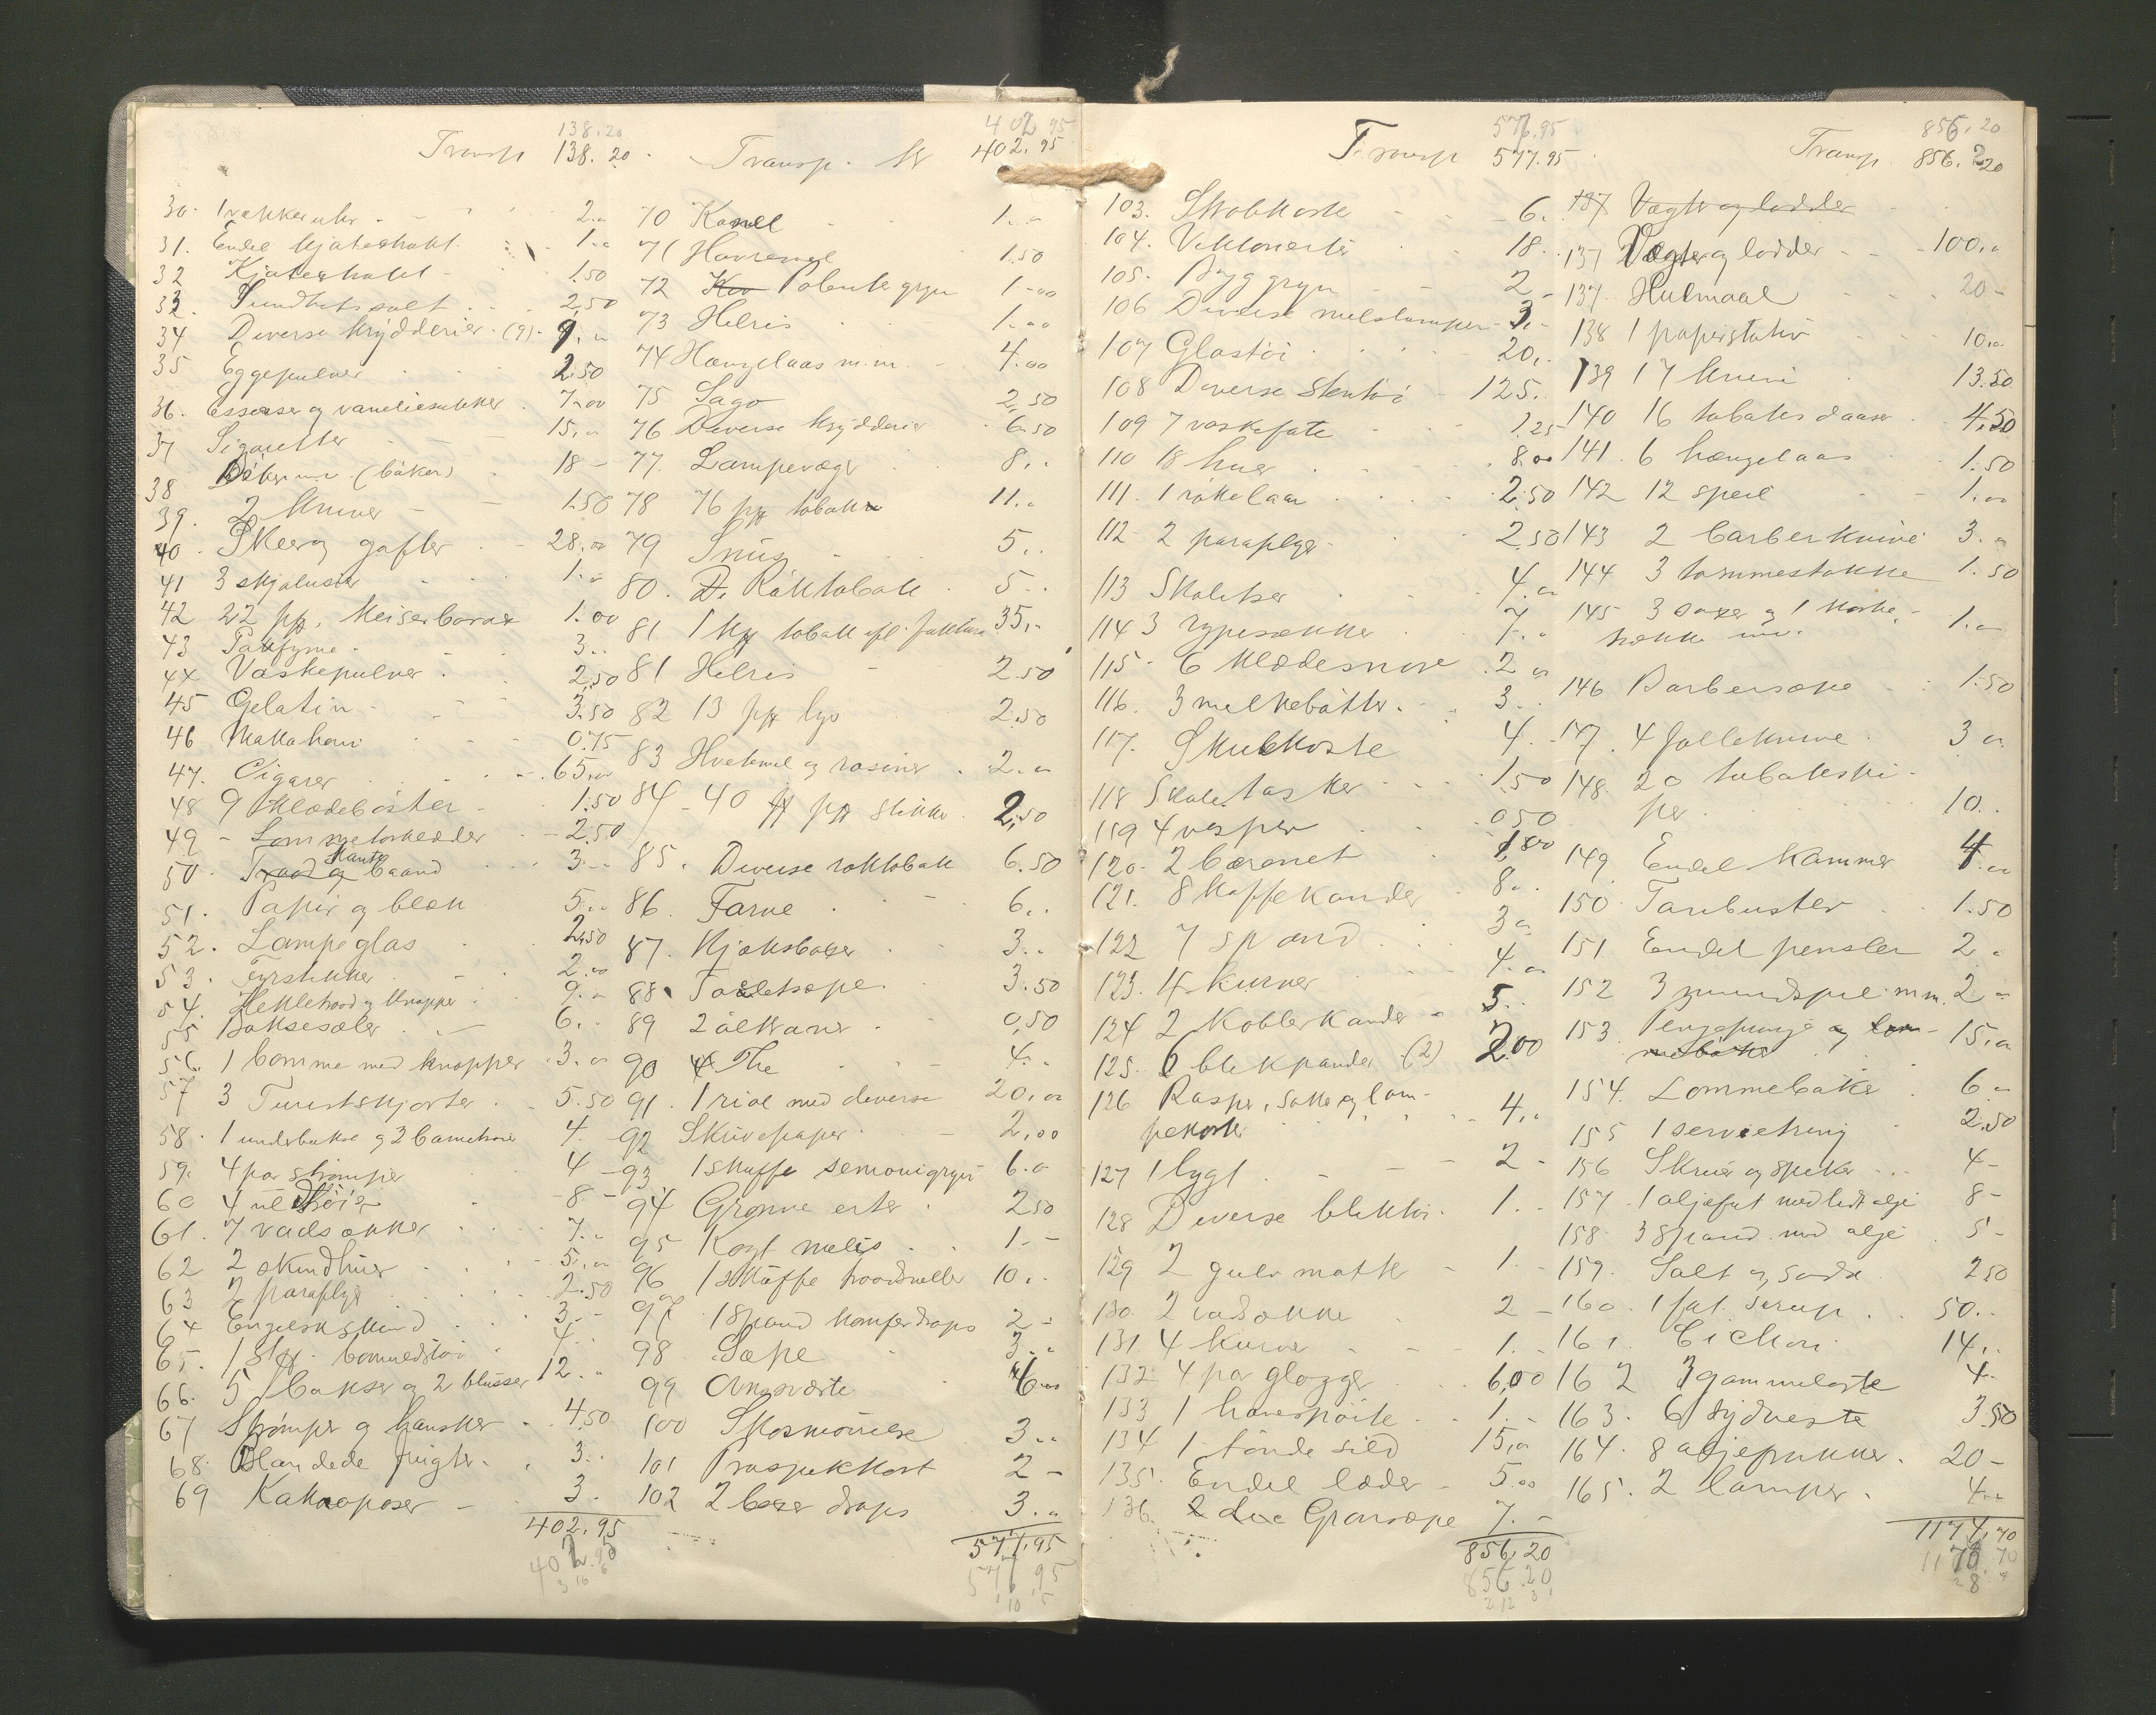 138.20
Transp 138.20
30. 1 vækkeruhr 2.-
31. Endel kjøleshakk. 1.-
32 1.50
33. Sundhetssalt 2,50
34 Diverse krydderier. (9). 9.-
35 Eggepulver 2.50
36. Essenser og vaneliesukker 7.00
37 Sigaretter 15,-
38 (bøker) 18 -
39. 2 kniver 1.50
40. Skeer og gafler 28.00
41 3 skjalusier 1.-
42 22 pk. Keiserborax 1.00
43 Parfyme 3..
44 Vaskepulver 2,50
45 Gelatin 3.50
46 Makaroni 0.75
47. Cigarer 65,00
48 9 klædebörster 1.50
49 - Lommetørklæder 2.50
50. Traad og Kantebaand 3..
51. Papir og blæk 5..
52. Lampeglas 2.50
53. Fyrstikker 2.00
54. Hekletraad og knapper 9.-
55 Buksesæler 6..
56. 1 bomme med knapper 3.00
57 3 Turistskjorter 5.50
58. 1 underbukse og 2 4.
59. 4 par strømper 4
60 4 8 -
61. 7 vadsækker 7..
62 2 skindhuer 5,00
63 2 paraplyr 2.50
64 Engelskskind 3..
65. 1 bomuldstøi 4.
66. 5 bukser og 2 blusser 12..
67 Strømper og hansker 4,50
68. Blandede frugter 3.
69 Kakaoposer 3.
402.95
402.95
402.95
Transp. Kr 402.95
70 Kanel 1.-
71 Havremel 1.50
72 Kar Polentegryn 1.00
73 Helris 1.00
74 Hængelaas m.m. 4.00
75 Sago 2,50
76 Diverse krydderier 6.50
77. Lampevæger 8..
78 76 pk tobakk 11..
79 Snus 5..
80. Røktobakk 5..
81 1 kg tobakk efl. faktura 35,-
81 Helris 2.50
82 13 pk lys 2.50
83 Hvetemel og rosiner 2.00
84 - 40 pk stikker 2,50
85. Diverse røktobakk 6.50
86. Farve 6..
87. Kjeksboxer 3..
88. Toiletsæpe 3.50
89 2 ølkraner 0,50
90 The 4..
91. 1 riol med diverse 20,00
92 Skrivepapir 2,00
93 1 skuffe semouligryn 6.0
94 Grønne erter 250
95 Kogt melis 1.-
96 1 skuffe traadsneller 10..
97. 1 spand kamferdrops 2 -
98 Sæpe 3..
99 Ovnsværte 6.00
100 Skosmörelse 3..
101 Presjektkort 2 -
102 2 boxer drops 3..
577.95
576.95
576.95
Transp 577.95
103. Skrobkoste 6.
104. Viktoriaerter 18.
105. Byggryn 2 -
106 Diverse melslumper 3.-
107 Glastöi 20,.
108 Diverse Stentöi 125.
109 7 vaskefate 1.25
110 18 huer 8.00
111. 1 rökelaar 2.50
112 2 paraplyer 2.50
113 Skoletser 4.-
114 3 rypesækker 7.-
115. 6 klædesnore 2.00
116. 3 melkebøtter 3..
117. Skurekoste 4.
118 Skoletasker 1.50
119 4 vesper 0.50
120. 2 bærenet 1,800
121. 8 Kaffekander 8..
122 7 spand 3.-
123. 4 kurver 4.00
124 2 koblerkander 5..
125. 6 blekpander (2) 2.00
126 Rasper, sakse og lam-
pekoster 4..
127 1 lygt 2 -
128 Diverse blektöi 1..
129 2 gulvmatter 1.
130. 2 vadsække 2 -
131 4 kurve 1.
132. 4 par glogger 6,00
133 1 havespröite 1.-
134 1 tønde sild 15,00
135. Endel læder 5.00
136. Grønsæpe 7.-
856.20
856.20
856.20
Transp. 856.20
137 Vægter og lodder
137 Vægter og lodder 100,00
137. Hulmaal 20 -
138 1 papirstativ 10,00
139 17 knive 13.50
140 16 tobaksdaaser 4,50
141. 6 hængelaas 1.50
142 12 speil 1.00
143 2 barberknive 3.-
144 3 tommestokke 1.50
145 3 saxer og 1
1.-
146 Barbersæpe 1.50
147. 4 follekniver 3.00
148. 20 tobakspi-
per 10..
149. Endel kammer 4.00
150 Tanbuster 1.50
151 Endel pensler 2.-
152 3 mundspil m.m. 2 -
153. Pengepunge og lom-
mebøker 15,00
154. Lommebøker 6.-
155 1 serviethring 2.50
156 Skruer og spiker 4 -
157. 1 oljefat med lidt olje 8 -
158. 3 spand med olje 5 -
159. Salt og soda 250
160. 1 fat sirup 50..
161. Cichori 14..
162 3 gammeloste 4.
163. 6 sydveste 3.50
164. 8 oljefrakker 20 -
165. 2 lamper 4..
1174,70
1170,70